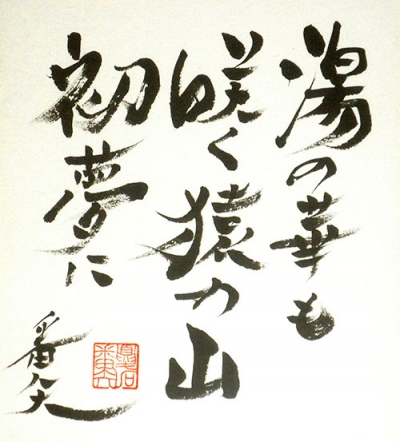 湯の華も
咲く猿の山
初夢に
番矢